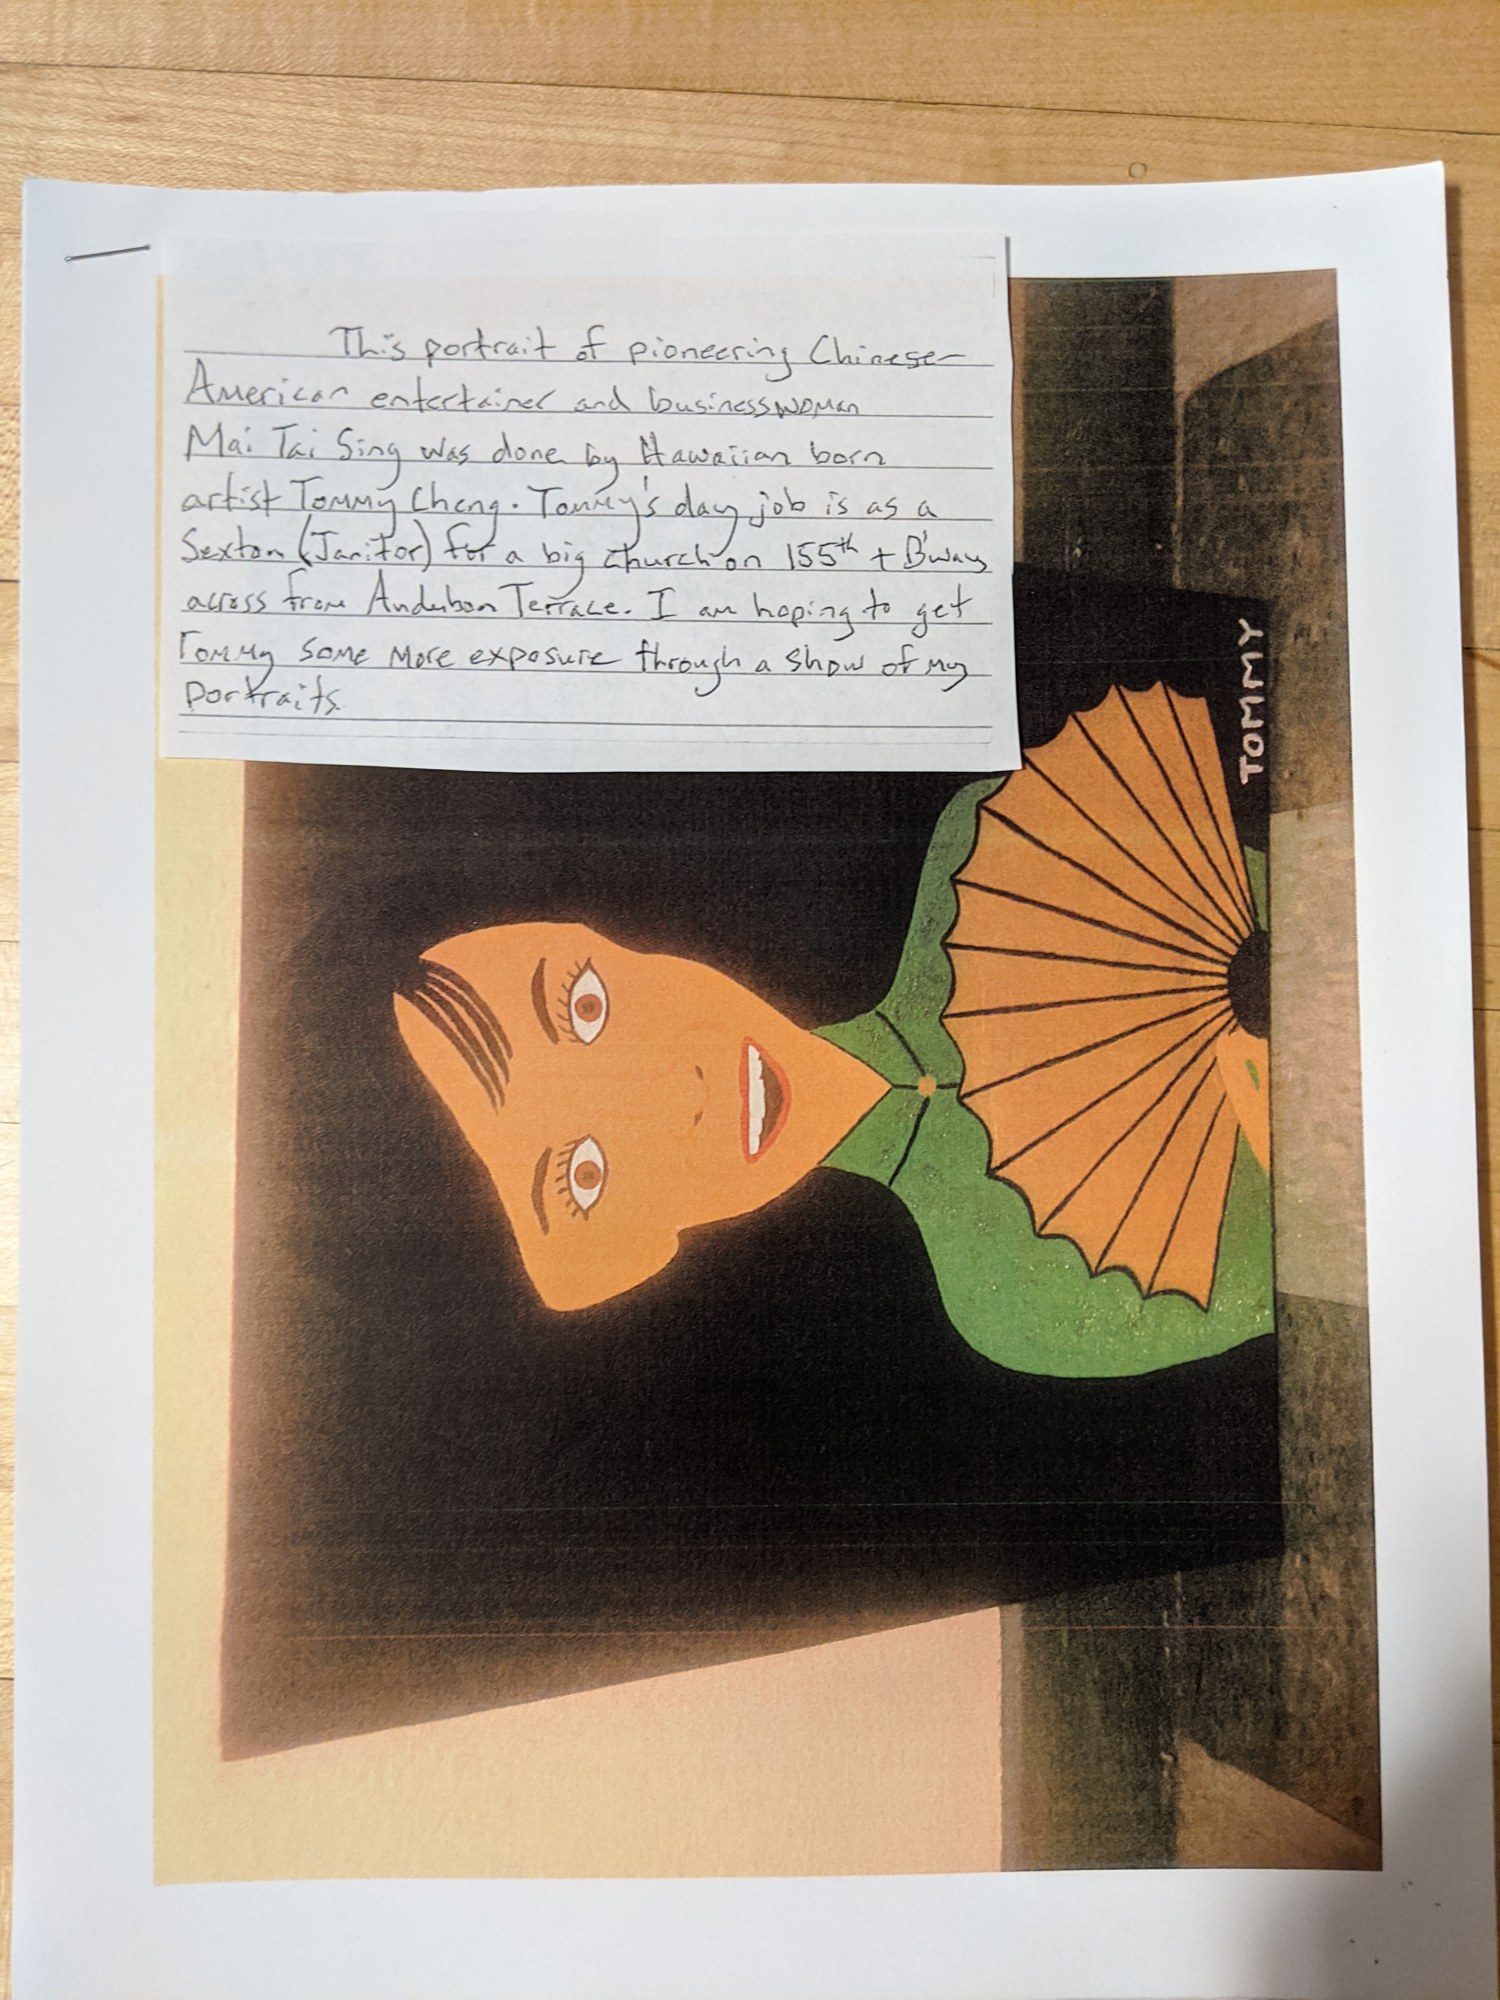 This portrait of pioneering Chinese-
American entertainer and businesswoman
Mai Tai Sing was done by Hawaiian born
artist Tommy Cheng. Tommy's day job is as a
Sexton (Janitor) for a big church on 155th + B'way
across from Audubon Terrace. I am hoping to get
Tommy some more exposure through a show of my
portraits.
TOMMY